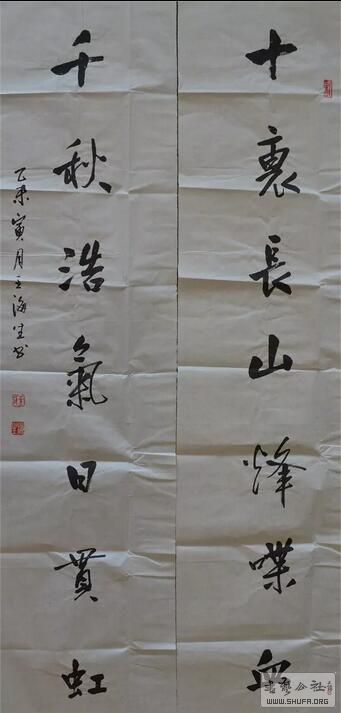 十裏長山烽喋血
千秋浩氣日貫虹
乙未寅月王海生书
書藝公社
WWW.SHUFA.ORG